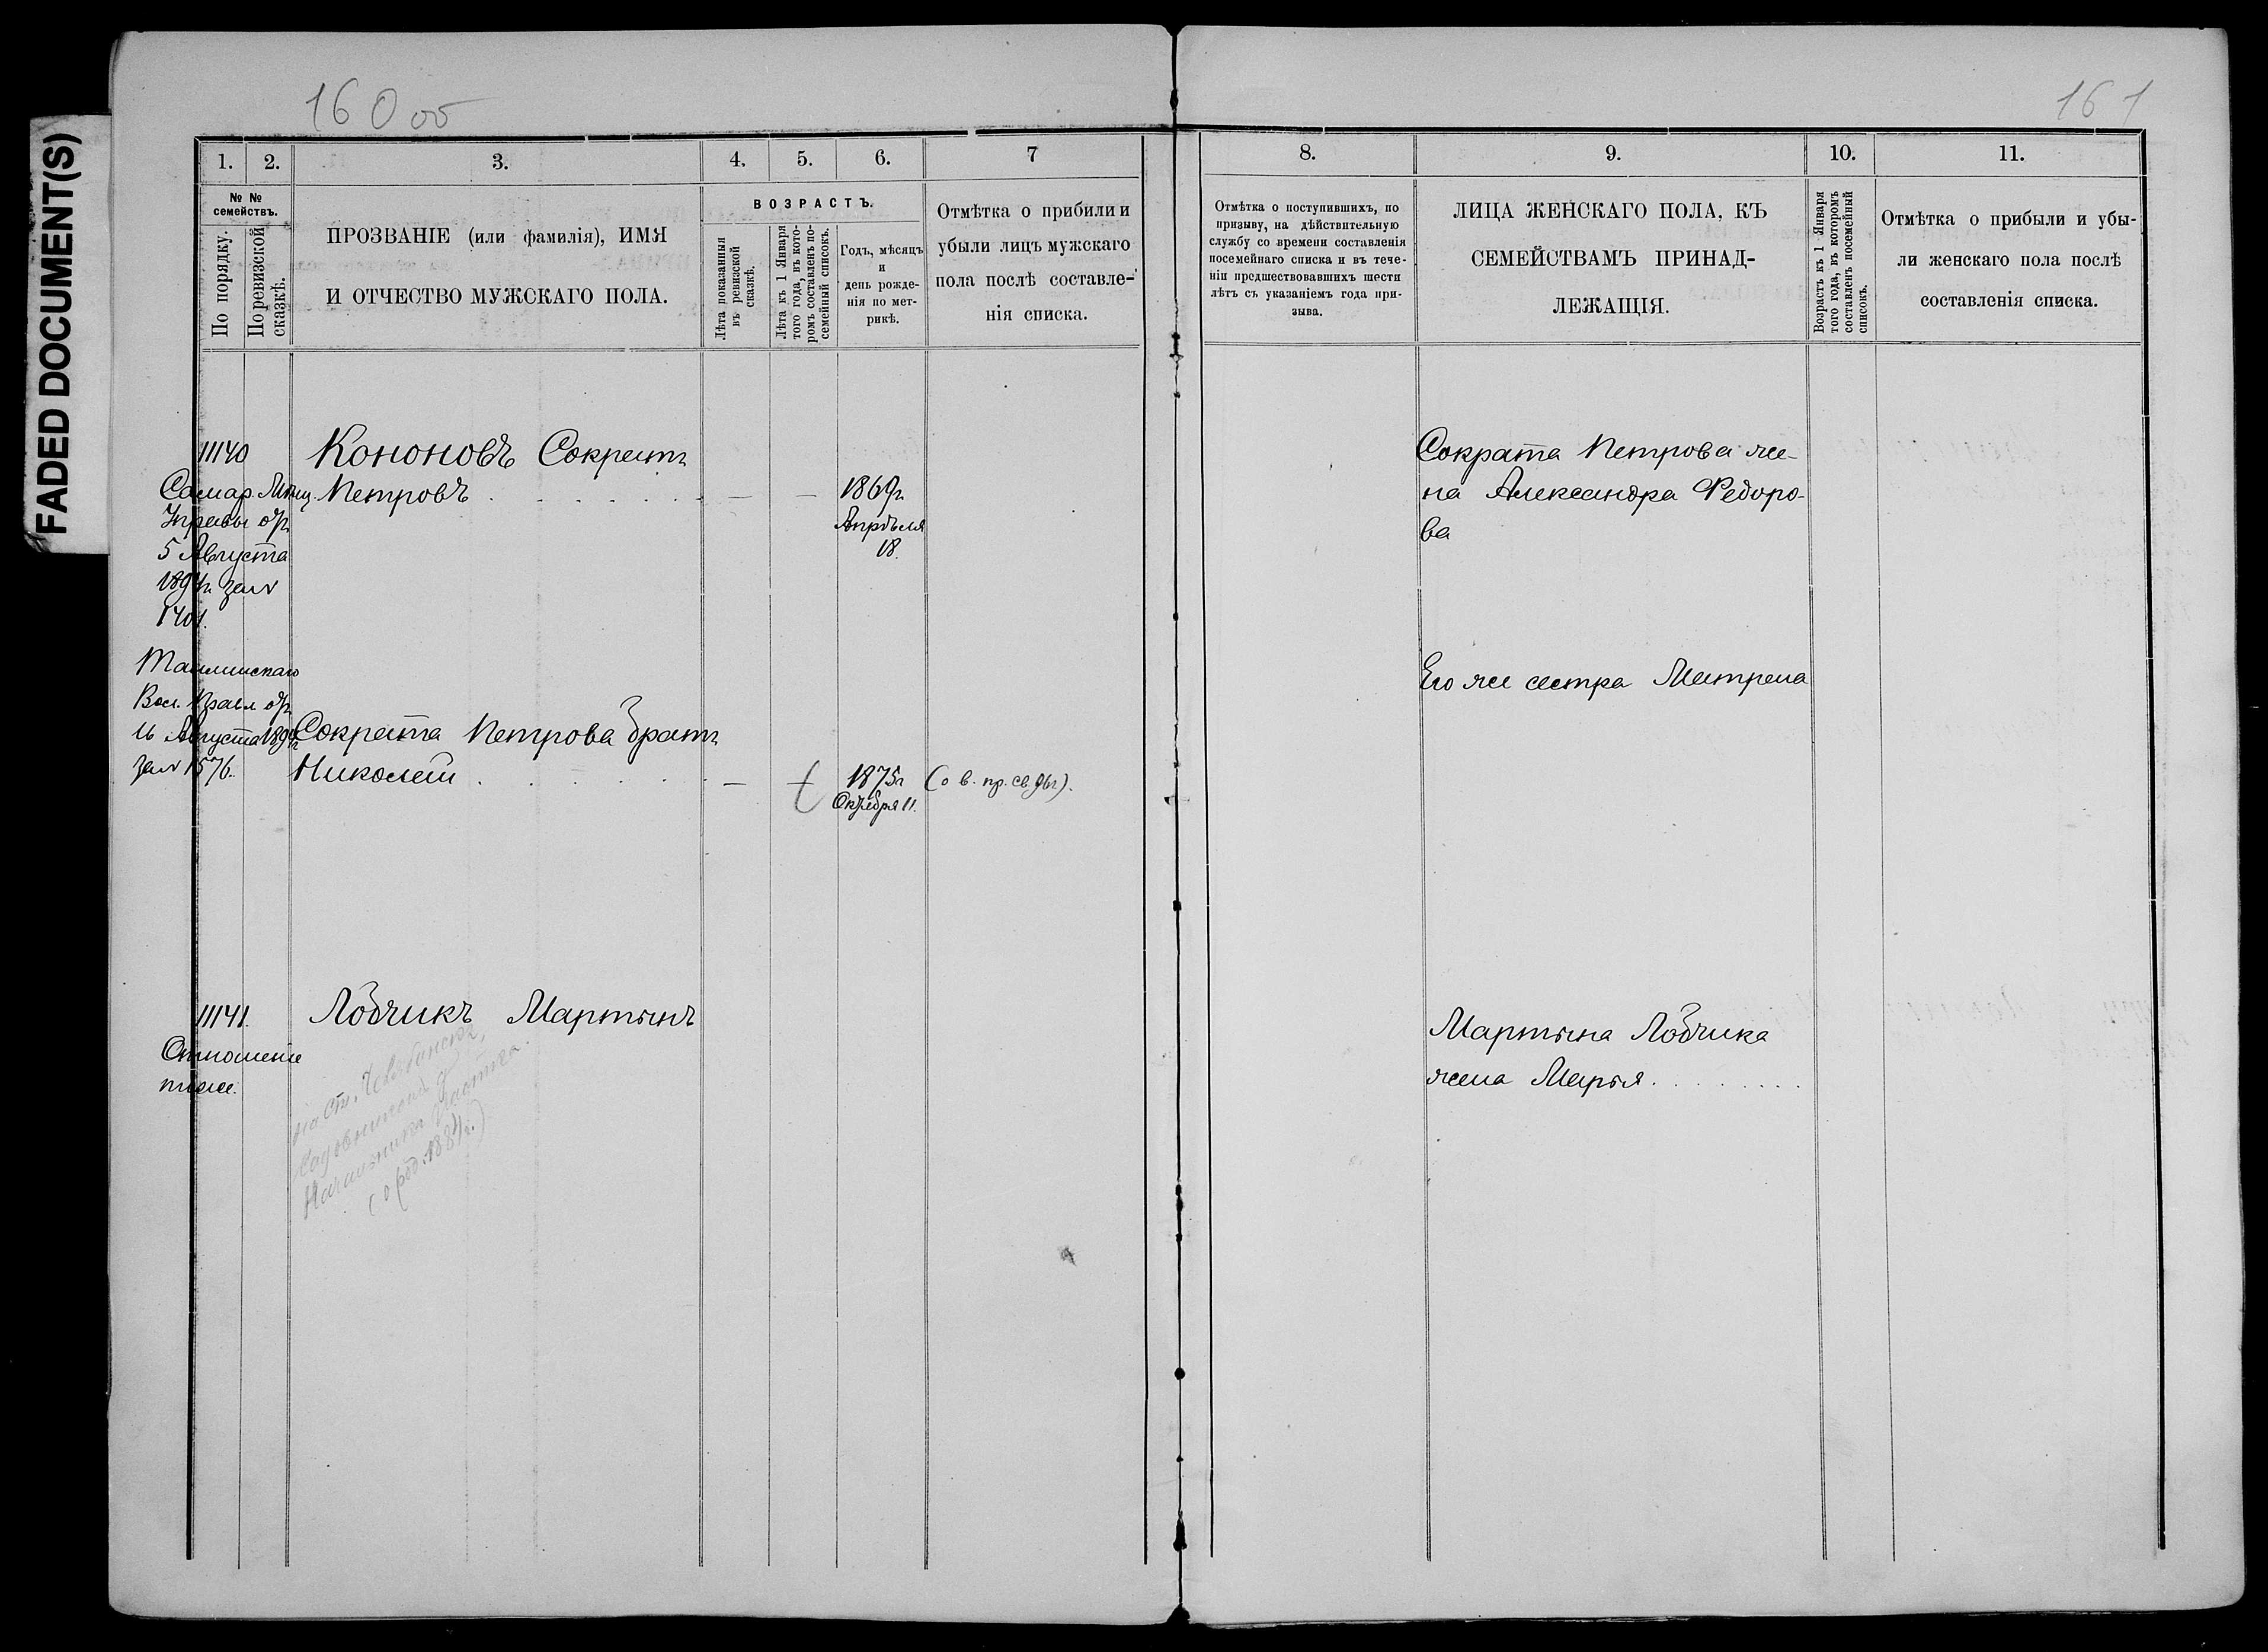 FADED DOCUMENT(S)
160 об
161
1.
2.
3.
4.
5.
6.
7
№ №
семействъ.
По порядку.
По ревизской
сказкѣ.
ПРОЗВАНІЕ (или фамилія), ИМЯ
И ОТЧЕСТВО МУЖСКАГО ПОЛА.
ВОЗРАСТЪ.
Лѣта показанныя
въ ревизской
сказкѣ.
Лѣта къ 1 Января
того года, въ кото-
ромъ составленъ по-
семейный списокъ.
Годъ, мѣсяцъ
и
день рожде-
нія по мет-
рикѣ.
Отмѣтка о прибили и
убыли лицъ мужскаго
пола послѣ составле-
нія списка.
8.
9.
10.
11.
Отмѣтка о поступившихъ, по
призыву, на дѣйствительную
службу со времени составленія
посемейнаго списка и въ тече-
ніи предшествовавшихъ шести
лѣтъ съ указаніемъ года при-
зыва.
ЛИЦА ЖЕНСКАГО ПОЛА, КЪ
СЕМЕЙСТВАМЪ ПРИНАД-
ЛЕЖАЩІЯ.
Возрастъ къ 1 Января
того года, въ которомъ
составленъ посемейный
списокъ.
Отмѣтка о прибыли и убы-
ли женскаго пола послѣ
составленія списка.
11140
Кононовъ Сократъ
Самар. Мѣщ. Петровъ . . . . . . — — 1869г.
Управы от
Апрѣля
5 Августа
18.
1894г. за №
1401.
Вол. Правл от
16 Августа 1894г
Сократа Петрова братъ
за № 1576.
Николай . . . . . . — 1875г (о в. пр. св. 96г).
Октября 11.
11141.
Лобчикъ Мартынъ
Отношеніе
тоже.
на Ст. Челябинскъ,
Начальника участка.
(о род. 1884г.)
Сократа Петрова же-
на Александра Федоро-
ва
Его же сестра Матрена
Мартына Лобчика
жена Марья . . . . . . . .